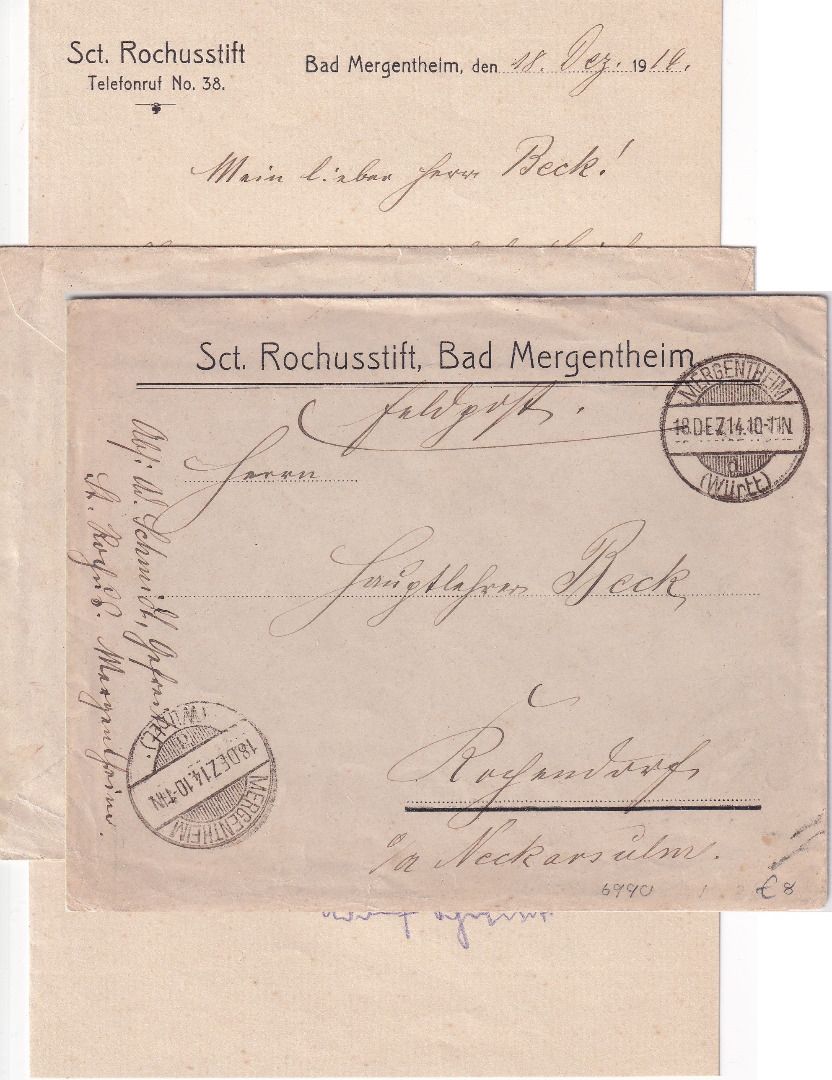 Sct. Rochusstift
Telefonruf No. 38.
Bad Mergentheim, den 18. Dez. 1914.
Mein lieber Herr Beck!
Sct. Rochusstift, Bad Mergentheim
Feldpost.
MERGENTHEIM
18.DEZ.14.10-11N.
(Württ)
Herrn
Hauptlehrer Beck
Kochendorf
o/a Neckarsulm.
Abs: W. Schmidt, Gefreiter
St. Rochus. Mergentheim.
MERGENTHEIM
18.DEZ.14.10-11N.
(WÜRTT.)
6990
€ 8